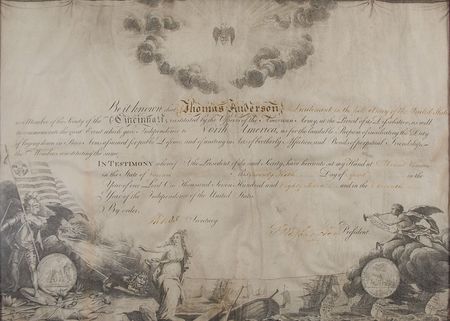 Be it known that Thomas Anderson Lieutenant in the late Army of the United States
is a Member of the Society of the Cincinnati, instituted by the Officers of the American Army, at the Period of its Dissolution, as well
to commemorate the great Event which gave Independence to North America, as for the laudable Purpose of inculcating the Duty
of laying down in Peace Arms assumed for public Defence, and of uniting in Acts of brotherly Affection, and Bonds of perpetual Friendship,
the Members constituting the same.
In Testimony whereof I, the President of the said Society, have hereunto set my Hand at
in the State of Day of in the
Year of our Lord One Thousand Seven Hundred and Eighty and in the
Year of the Independence of the United States.
By order,
Secretary
President.